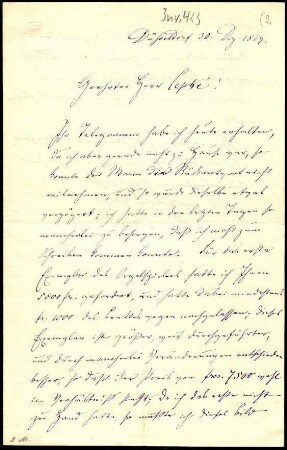 Inv. 423
(2
Düsseldorf 30. Dez. 1869.
Geehrter Herr Lepke!
Ihr Telegramm habe ich heute erhalten,
da ich aber gerade nicht zu Hause war, so
konnte der Mann die Rückantwort nicht
mitnehmen, und so wurde dieselbe etwas
verzögert; ich hatte in den letzten Tagen so
mancherlei zu besorgen, daß ich nicht zum
Schreiben kommen konnte. Für das erste
Exemplar des hatte ich Ihnen
5000 fr. gefordert, und hatte dabei mindestens
fr. 1000 des wegen nachgelassen; dieses
Exemplar ist größer, durchgeführter,
und durch mancherlei Veränderungen entschieden
besser, so daß der Preis von frs. 7.500 wohl
im Verhältniß steht; da ich das erste nicht
zur Hand hatte, so mußte ich dieses Bild